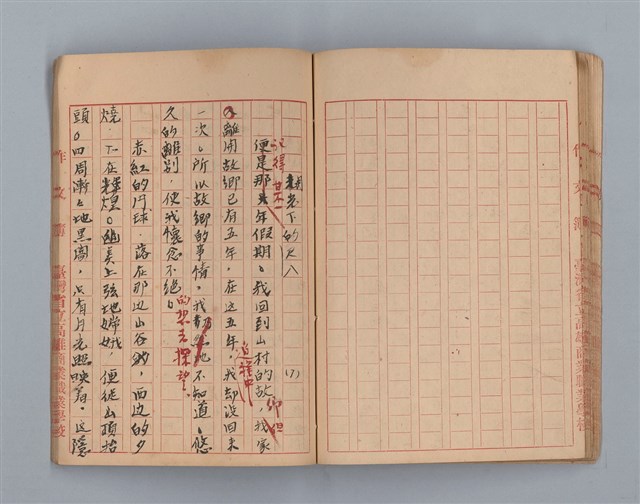 的家人 (7)
記得廿一
便是那年假期。我回到山村的故，我家
仰但
離開故鄉已有五年，在這五年，我却沒回來
過程中
一次。所以故鄉的事情，我都不知道。悠
久的離別，使我懷念不絕。
的想去探望
赤紅的月球，落在那边山谷，西边的夕
燒，正在輝煌。上弦地嫦娥，便從山頭抬
頭。四周漸々地黑闇，只有月光照映着。这隱
作文簿
臺灣省立高雄商業職業學校
作文簿
臺灣省立高雄商業職業學校